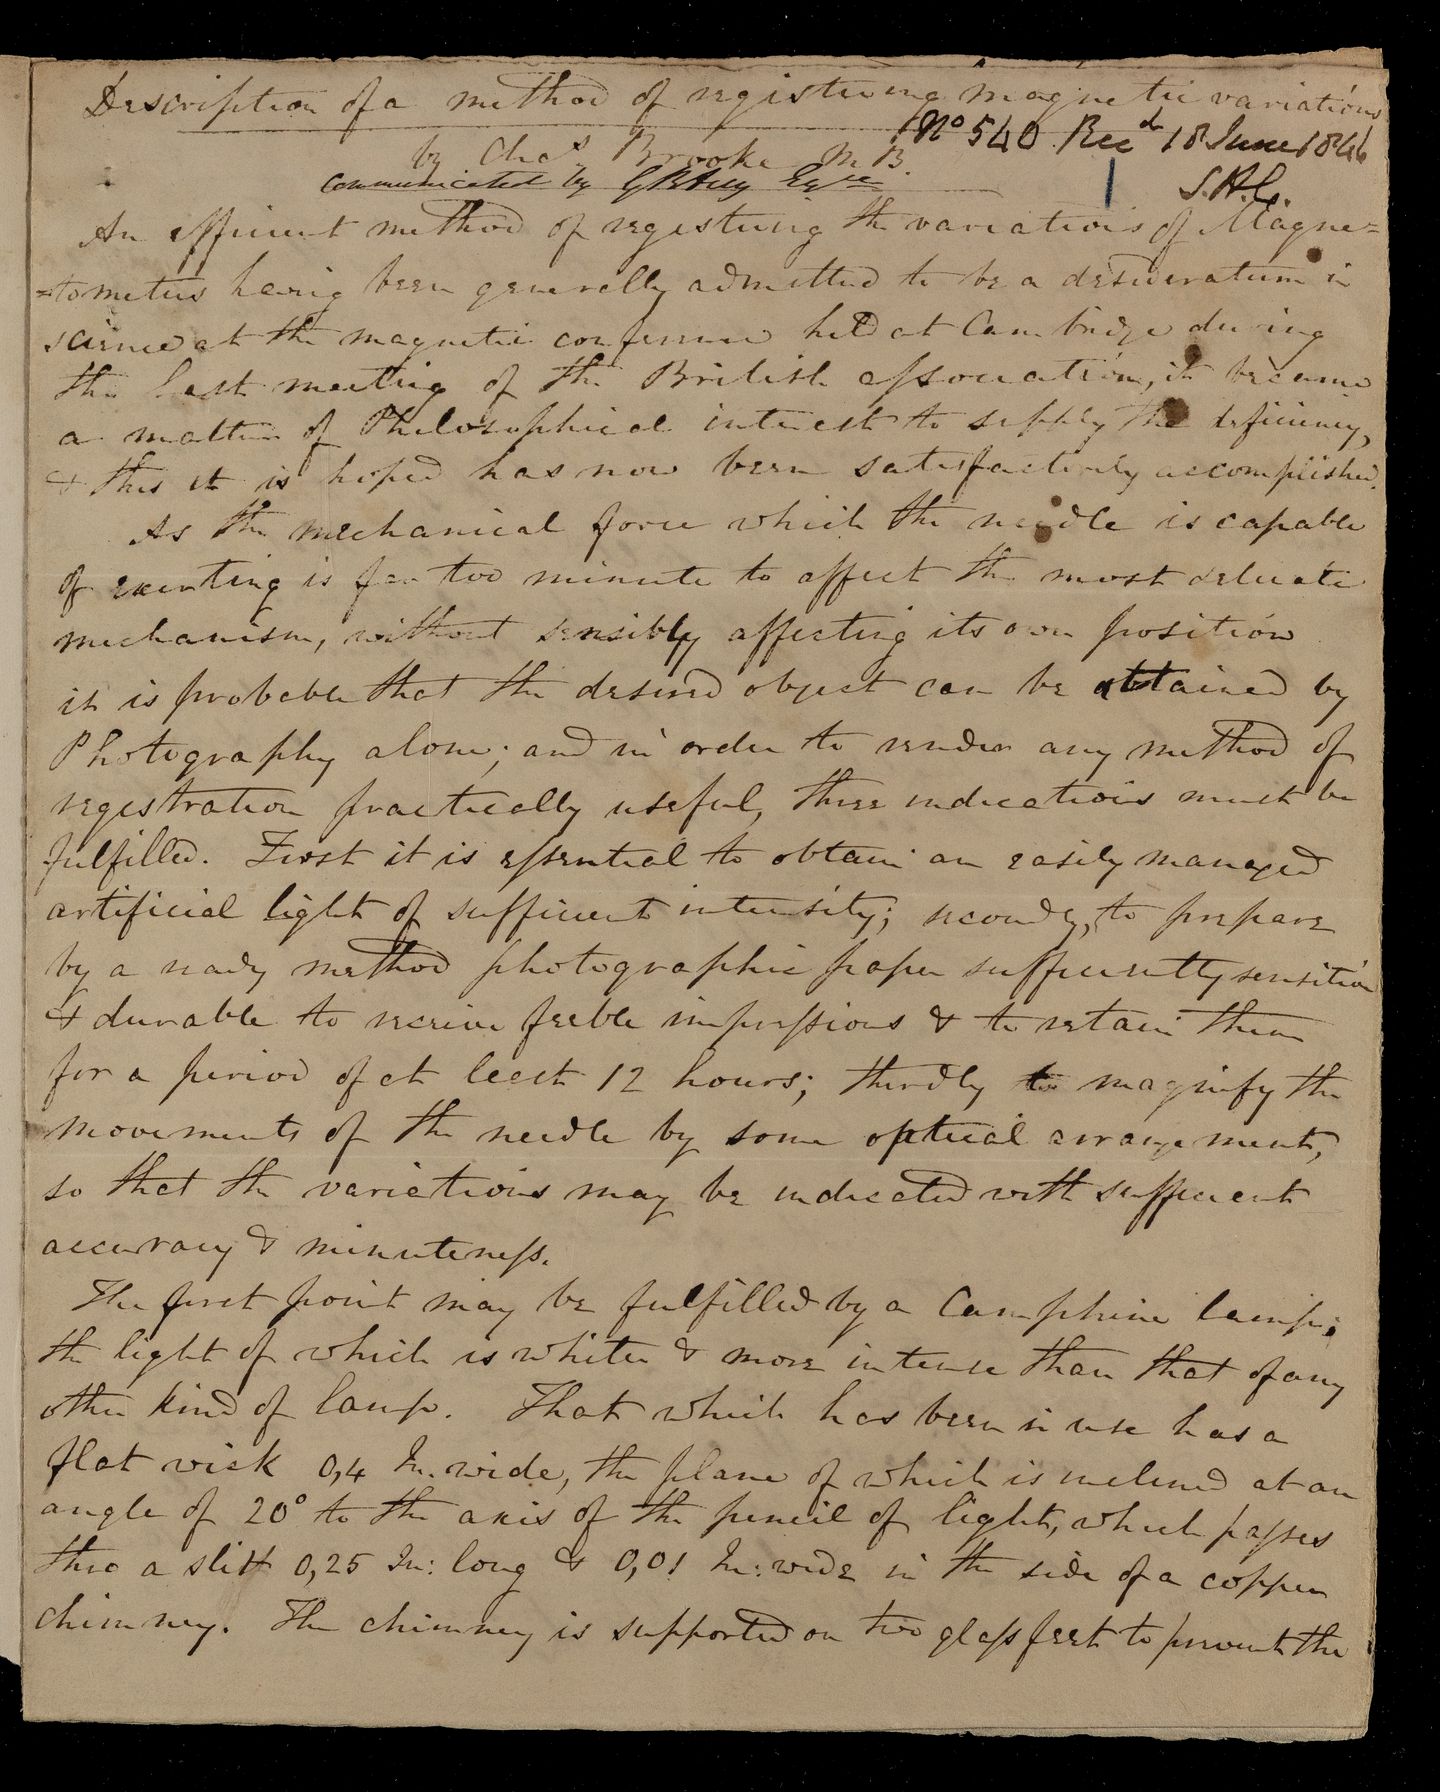 Description of a method of registering magnetic variations
No 540. Recd 18 June 1846
by Chas. Brooke M B.
S.H.C.
communicated by G B Airy Esqre
1
An efficient method of registering the variations of Magne=
=tometers having been generally admitted to be a desideratum in
science at the magnetic conference held at Cambridge during
the last meeting of the British association, it became
a matter of Philosophical interest to supply the deficiency,
& this it is hoped has now been satisfactorily accomplished.
As the mechanical force which the needle is capable
of exerting is far too minute to affect the most delicate
mechanism, without sensibly affecting its own position
it is probable that the desired object can be attained by
Photography alone; and in order to render any method of
registration practically useful, three indications must be
fulfilled. First it is essential to obtain an easily managed
artificial light of sufficient intensity; secondly, to prepare
by a ready method photographic paper sufficiently sensitive
& durable to receive feeble impressions & to retain them
for a period of at least 12 hours; thirdly to magnify the
movements of the needle by some optical arrangement,
so that the variations may be indicated with sufficient
accuracy & minuteness.
The first point may be fulfilled by a Camphine lamp;
the light of which is whiter & more intense than that of any
other kind of lamp. That which has been in use has a
flat wick 0,4 In. wide, the plane of which is inclined at an
angle of 20° to the axis of the pencil of light, which passes
thro a slit 0,25 In: long & 0,01 In: wide in the side of a copper
chimney. The chimney is supported on two glass feet to prevent the